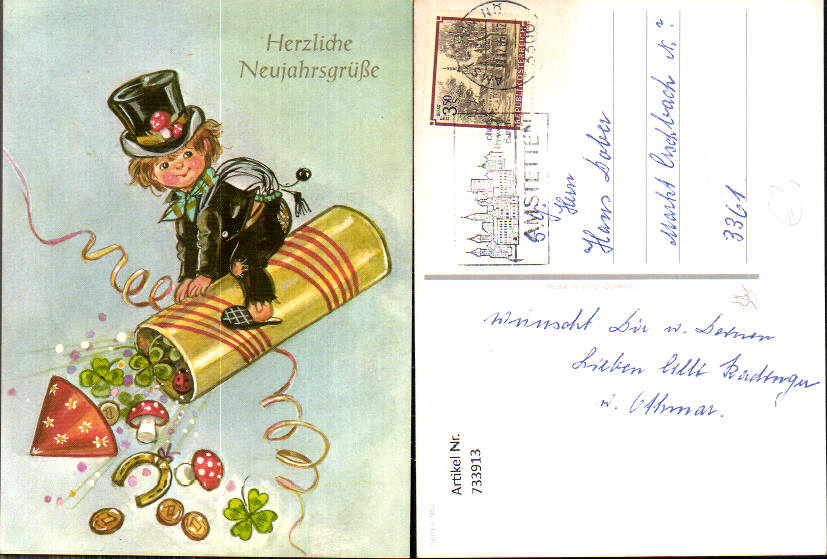 Herzliche
Neujahrsgrüße
REPUBLIK ÖSTERREICH
S 3.50
3300
AMSTETTEN
Herrn
Hans Daber
Markt Aschbach N.Ö
3361
Made in West Germany
wünscht Dir u. Deinen
Lieben
u. Othmar.
Artikel Nr.
733913